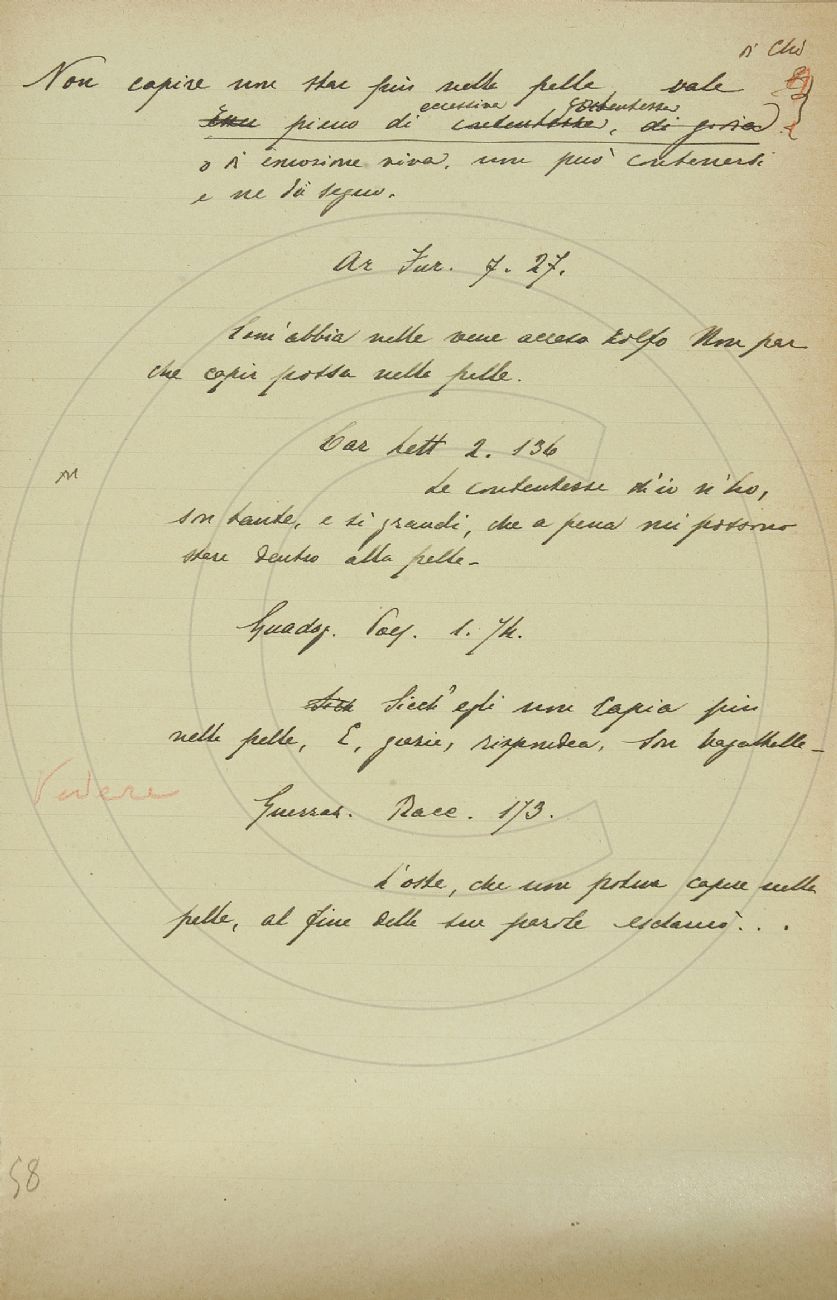 di Chi
Non capire non star più nella pelle, vale
eccessiva contentezza
pieno di contentezza, di gioia
o di emozione viva, non può contenersi
e ne dà segno.
Ar Fur. 7. 27.
Com' abbia nelle vene acceso zolfo Non par
che capir possa nella pelle.
Car Lett 2. 136
Le contentezze ch'io n'ho,
son tante, e sì grandi, che a pena mi possono
stare dentro alla pelle_
Guadag. Poes. 1. 74.
Sicch' egli non capia più
nella pelle, E, grazie, rispondea, son bagattelle_
Vedere
Guerraz. Racc. 173.
L'oste, che non poteva capire nella
pelle, al fine delle sue parole esclamò. . .
58